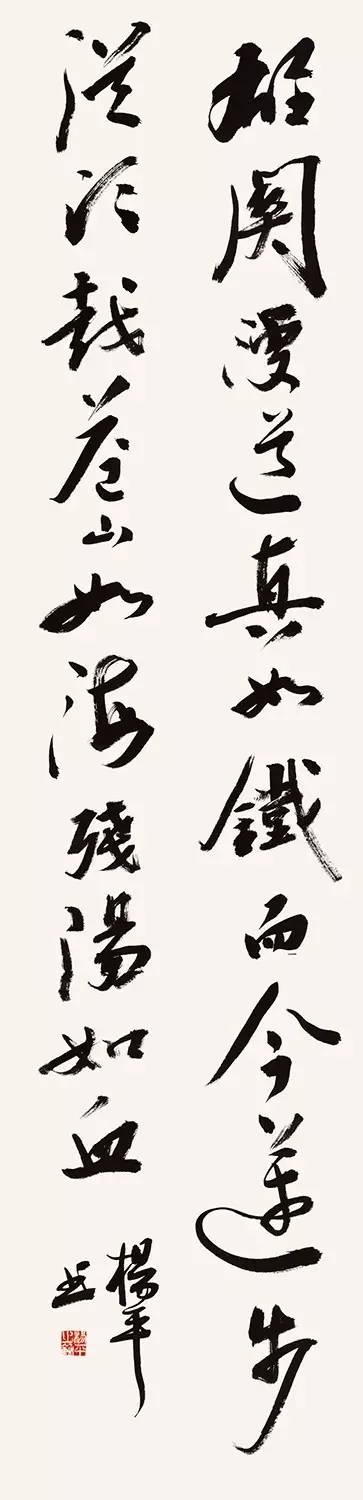 雄關漫道真如鐵而今邁步
從頭越蒼山如海殘陽如血
楊平
书